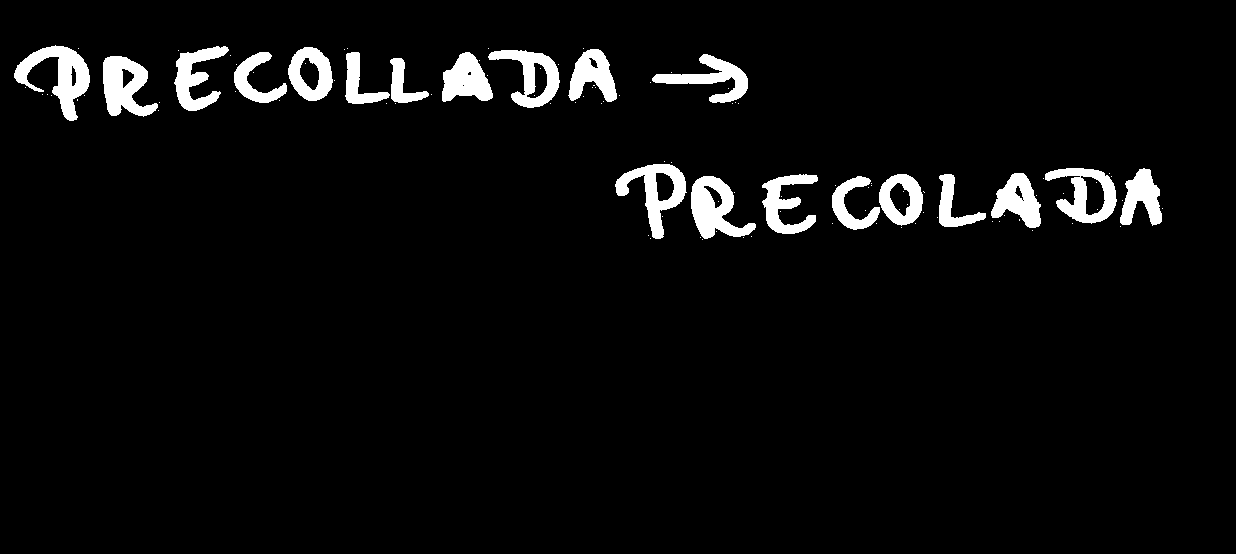 PRECOLLADA →
PRECOLADA